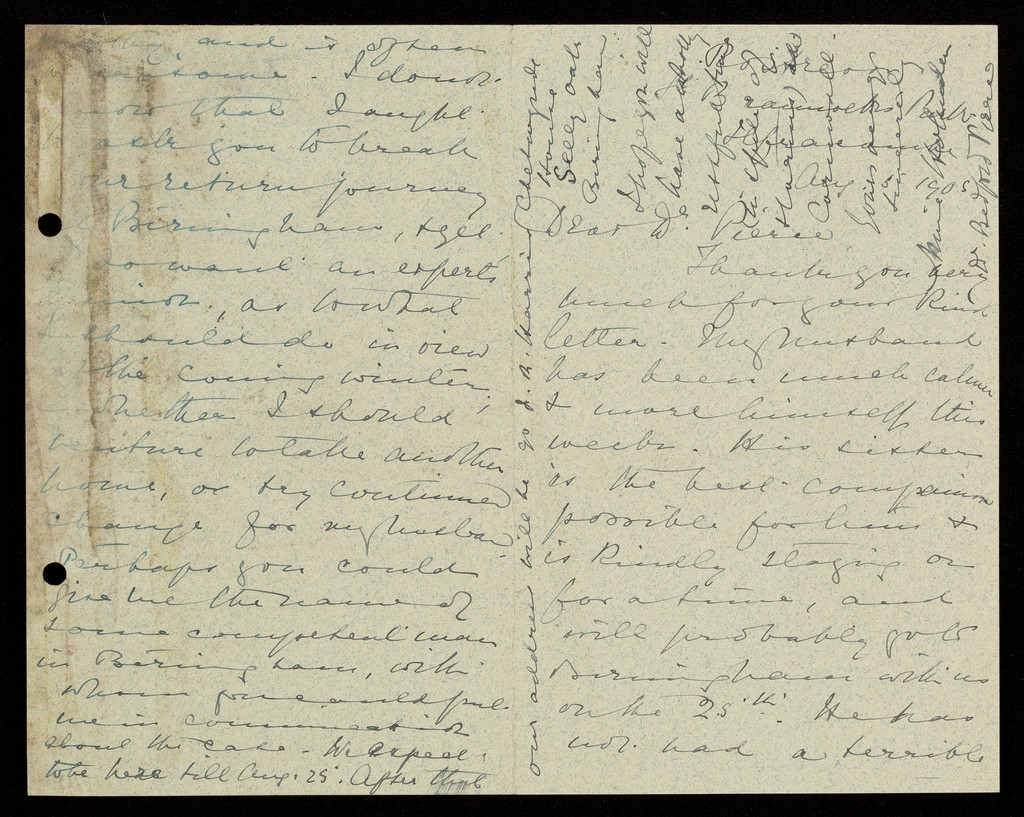 Aug 1905
Dear Dr. Pierce
Thank you very
much for your kind
letter - My husband
has been much calmer
& more himself this
week. His sister
is the best companion
possible for him &
is kindly staying on
for a time, and
will probably go to
Birmingham with us
on the 25th. He has
not had a terrible
and is often
- I don't
that I ought
ask you to break
our return journey
Birmingham, & yet
I do want an expert's
as to what
I should do in view
the coming winter,
whether I should
venture to take another
home, or try continued
change for my husband
Perhaps you could
give me the name of
some competent man
in Birmingham, with
whom you could put
me in communication
about the case - We expect
to be here till Aug. 25. After that
our address will be
Harris
House
Selly Oak
Birmingham
I hope you will
have a
restful time
in
Cornwall.
Yours very
sincerely
Dr. Bedford Pierce